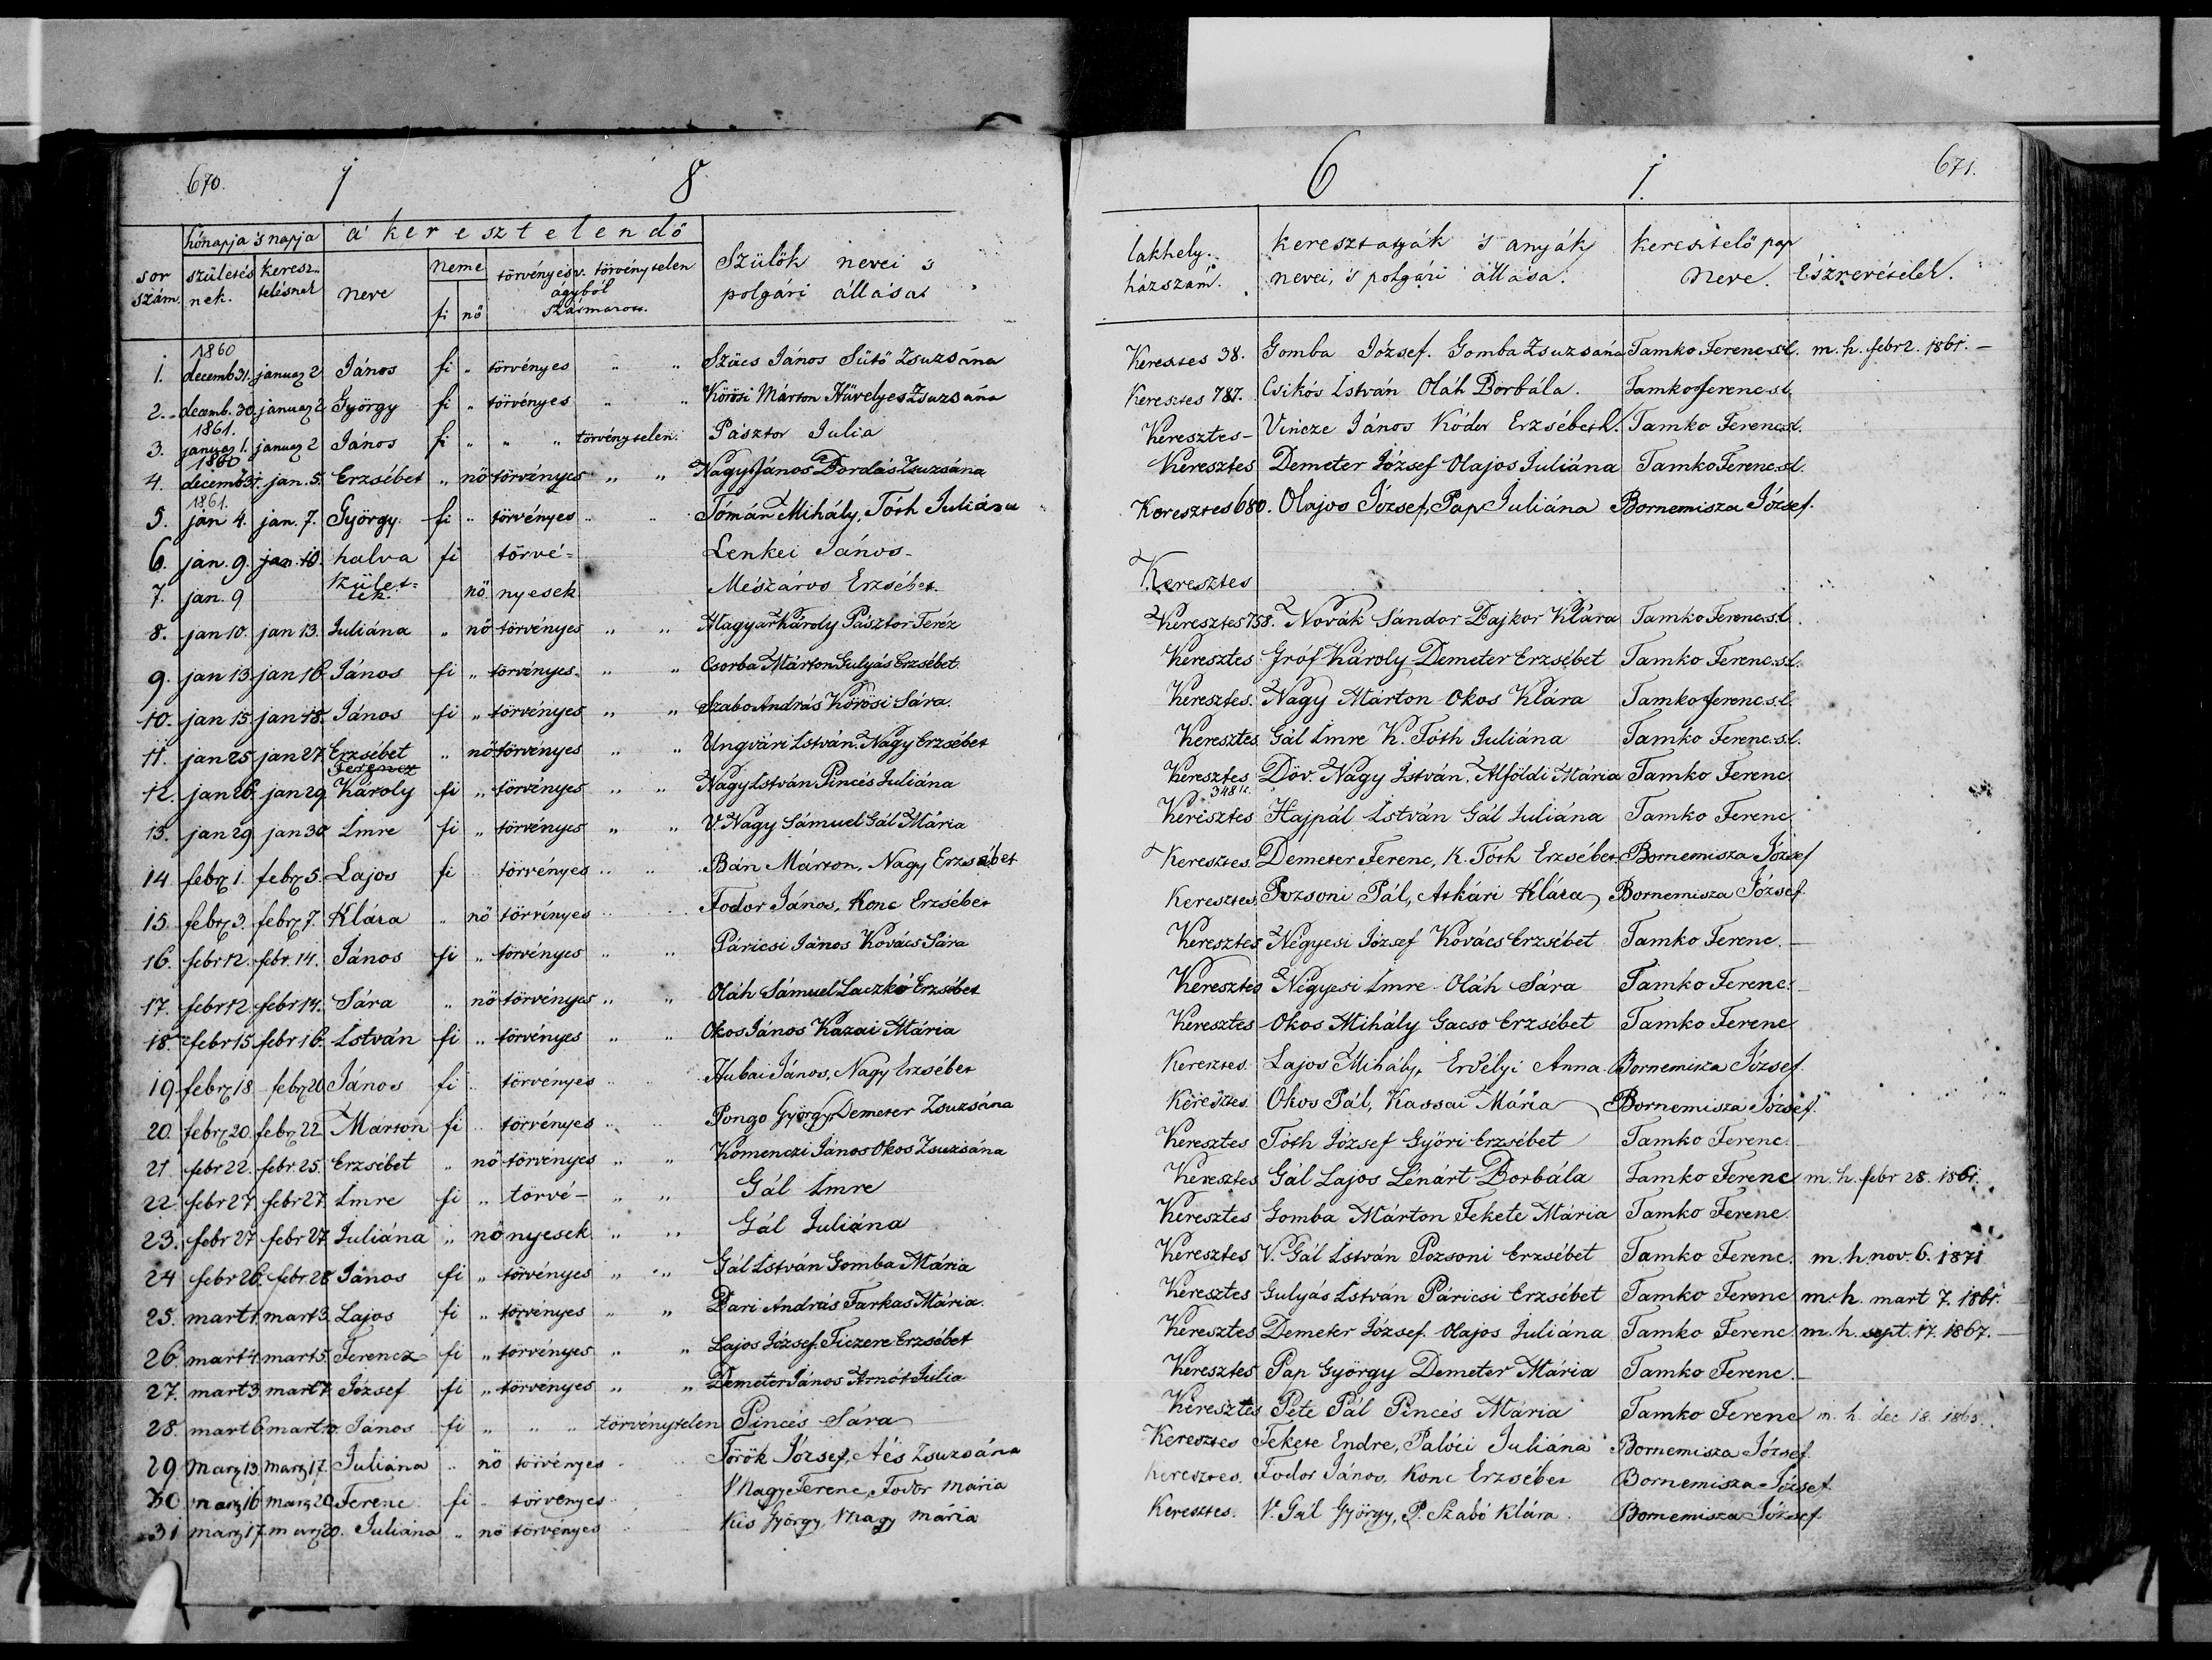 670. 1 8
hónapja 's napja a' keresztelendő
sor szám. születésnek. keresztelésnek neve neme fi nő törvényes v. törvénytelen ágyból származott. Szülők nevei 's polgári állása
1. 1860 decemb 31. januar 2 János fi „ törvényes „ „ Szücs János Sütő Zsuzsána
2. decemb. 30. januar 2 György fi „ törvényes „ „ Körösi Márton Hüvelyes Zsuzsána
3. 1861. januar 1. januar 2 János fi „ „ „ törvénytelen. Pásztor Julia
4. 1860 decemb 31. jan. 5. Erzsébet „ nő törvényes „ „ Nagy János Bordás Zsuzsána
5. 1861. jan 4. jan. 7. György fi „ törvényes „ „ Tómán Mihály, Tóth Juliána
6. jan. 9. jan. 10. halva fi törvé= Lenkei János
7. jan. 9 születtek. nő nyesek Mészáros Erzsébet.
8. jan 10. jan 13. Juliána „ nő törvényes „ „ Magyar Károly Pásztor Teréz
9. jan 13 jan 16 János fi „ törvényes „ „ Csorba Márton Gulyás Erzsébet
10. jan 15 jan 18. János fi „ törvényes „ „ Szabo András Körösi Sára.
11. jan 25 jan 27 Erzsébet „ nő törvényes „ „ Ungvári István Nagy Erzsébet
12. jan 26. jan 29 Ferencz Károly fi „ törvényes „ „ Nagy István Pincés Juliána
13. jan 29. jan 30 Imre fi „ törvényes „ „ V. Nagy Sámuel Gál Mária
14 febr 1. febr 5. Lajos fi törvényes „ „ Bán Márton, Nagy Erzsébet
15. febr 3. febr 7. Klára „ nő törvényes „ „ Fodor János, Konc Erzsébet
16. febr 12. febr. 14. János fi „ törvényes „ „ Páricsi János Kovács Sára
17. febr 12. febr 14. Sára „ nő törvényes „ „ Oláh Sámuel Laczkó Erzsébet
18. febr 15. febr 16. István fi „ törvényes „ „ Okos János Kazai Mária
19 febr 18 febr 20 János fi „ törvényes „ „ Hubai János, Nagy Erzsébet
20. febr 20. febr 22 Márton fi „ törvényes „ „ Pongo György Demeter Zsuzsána
21 febr 22. febr 25. Erzsébet „ nő törvényes „ „ Komenczi János Okos Zsuzsána
22. febr 27. febr 27. Imre fi „ törvé- „ „ Gál Imre
23. febr 27 febr 27 Juliána „ nő nyesek „ „ Gál Juliána
24 febr 26. febr 28 János fi „ törvényes „ „ Gál István Gomba Mária
25. mart 1. mart 3. Lajos fi „ törvényes „ „ Bari András Farkas Mária.
26. mart 4. mart 5. Ferencz fi „ törvényes „ „ Lajos József Ficzere Erzsébet
27. mart 3. mart 7 József fi „ törvényes „ „ Demeter János Arnót Julia
28. mart 6. mart 10. János fi „ „ „ törvénytelen Pincés Sára
29 marz 13. marz 17. Juliána „ nő törvényes Török József, Aés Zsuzsána
30 marz 16 marz 20 Ferenc fi törvényes Nagy Ferenc, Fodor mária
31 marz 17. marz 20. Juliána „ nő törvényes Kis György Nagy mária
6 1. 671.
lakhely. házszám. keresztatyák 's anyák nevei, 's polgári állása. keresztelő pap neve. Észrevételek.
Keresztes 38. Gomba József. Gomba Zsuzsána Tamko Ferenc s.l. m. h. febr 2. 1861. —
Keresztes 787. Csikós István Oláh Borbála. Tamko ferenc s.l.
Keresztes- Vincze János Kódor Erzsébeth. Tamko Ferenc s.l.
Keresztes Demeter József Olajos Juliána Tamko Ferenc s.l.
Keresztes 680. Olajos József, Pap Juliána Bornemisza József.
Keresztes
Keresztes 758. Novák Sándor Dajkor Klára Tamko Ferenc s.l.
Keresztes Gróf Károly Demeter Erzsébet Tamko Ferenc s.l.
Keresztes. Nagy Márton Okos Klára Tamko ferenc s.l.
Keresztes. Gál Imre K. Tóth Juliána Tamko Ferenc s.l.
Keresztes Döv. Nagy István. Alföldi Mária Tamko Ferenc
Keresztes Hajpál István Gál Juliána Tamko Ferenc
Keresztes. Demeter Ferenc, K. Tóth Erzsébet Bornemisza József
Keresztes. Pozsoni Pál, Atkári Klára, Bornemisza József
Keresztes Négyesi József Kovács Erzsébet Tamko Ferenc.
Keresztes Négyesi Imre Oláh Sára Tamko Ferenc.
Keresztes Okos Mihály Gacso Erzsébet Tamko Ferenc
Keresztes. Lajos Mihály, Erdélyi Anna Bornemisza József.
Keresztes. Okos Pál, Kassai Mária Bornemisza József.
Keresztes Tóth József Győri Erzsébet Tamko Ferenc.
Keresztes Gál Lajos Lénárt Borbála Tamko Ferenc m. h. febr 28. 1861.
Keresztes Gomba Márton Fekete Mária Tamko Ferenc.
Keresztes V. Gál István Pozsoni Erzsébet Tamko Ferenc. m. h. nov. 6. 1871
Keresztes Gulyás István Páricsi Erzsébet Tamko Ferenc m. h. mart 7. 1861.
Keresztes Demeter József Olajos Juliána Tamko Ferenc m. h. sept. 17. 1867.
Keresztes Pap György Demeter Mária Tamko Ferenc.
Keresztes Pete Pál Pincés Mária Tamko Ferenc m. h. dec 18.
Keresztes Fekete Endre, Palóci Juliána Bornemisza József.
Keresztes. Fodor János, Konc Erzsébet Bornemisza József.
Keresztes. V. Gál György, P. Szabó Klára. Bornemisza József